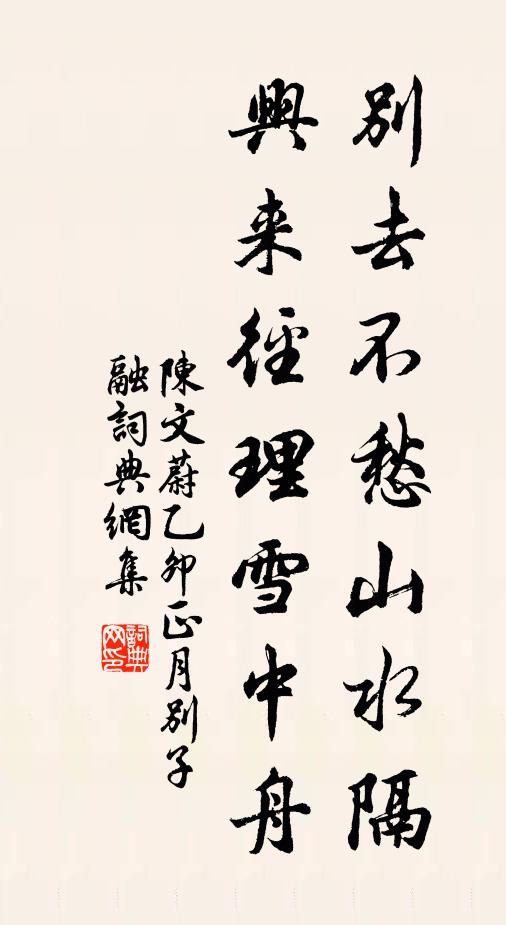 別去不愁山水隔
興来徑理雪中舟
陳文蔚乙卯正月別子
融詞典網集
詞典網印